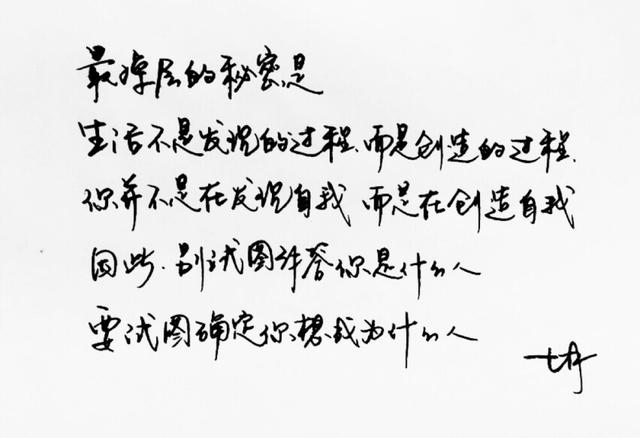 最深层的秘密是
生活不是发现的过程、而是创造的过程、
你并不是在发现自我 而是在创造自我
因此、别试图解答你是什么人
要试图确定你想成为什么人